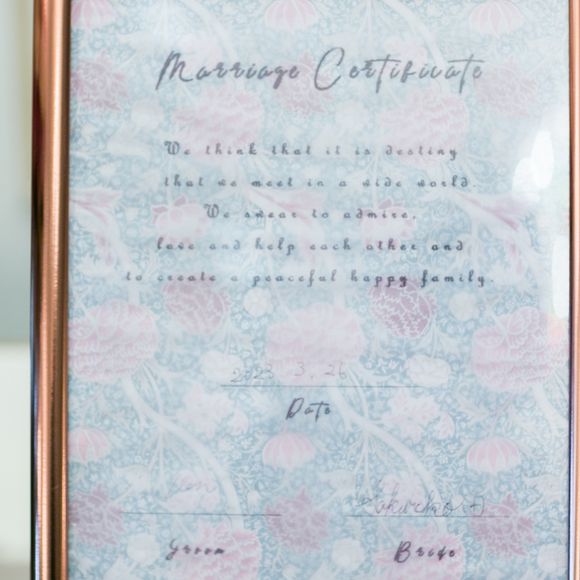 Marriage Certificate
We think that it is destiny
that we meet in a wide world.
We swear to admire,
love and help each other and
to create a peaceful happy family.
2023 . 3 . 26
Date
Groom
Bride